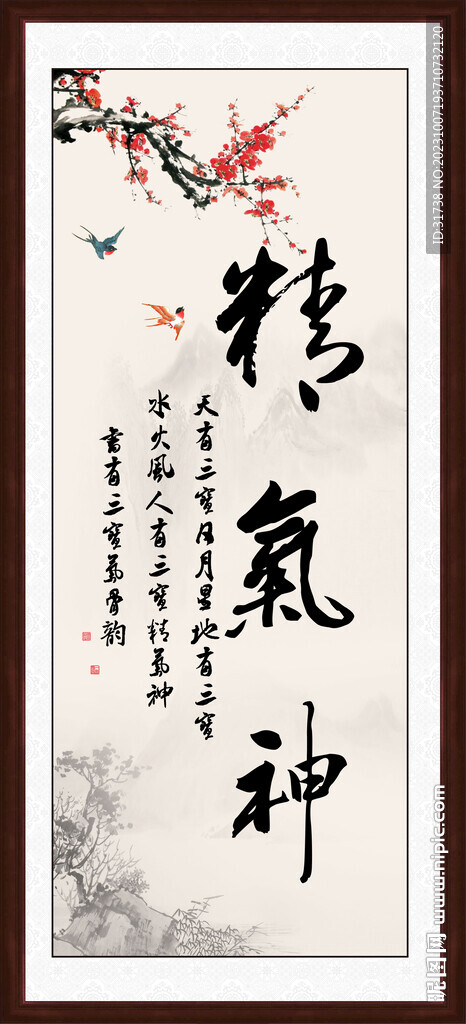 精氣神
天有三寶日月星地有三寶
水火風人有三寶精氣神
書有三寶氣骨韵
ID:31738 NO:20231007193710732120
昵图网 www.nipic.com